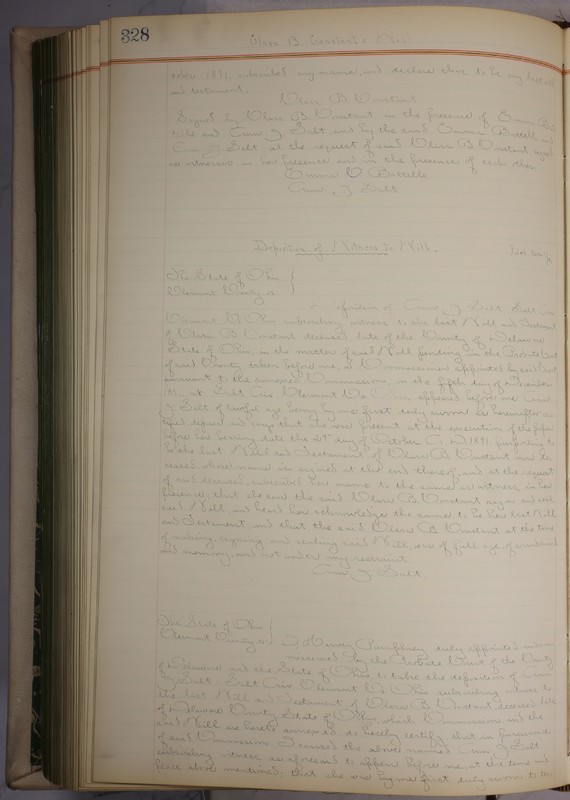 328
Clara B. Constant's Will
1891, subscribed my name, and declare this to be my last will
and testament.
Clara B. Constant
Signed by Clara B. Constant in the presence of Emma
and J. Salt and by the said Emma and
J. Salt at the request of said Clara B. Constant signed
as witnesses in her presence and in the presence of each other
Emma
J. Salt
Deposition of Witness to Will.
The State of Ohio
Clermont County ss
J. Salt, Salt
Clermont Co. Ohio subscribing witness to the last Will and Testament
of Clara B. Constant deceased late of the County of Delaware
State of Ohio, in the matter of said Will pending in the Probate Court
of said County taken before me, a Commissioner appointed by said Court
pursuant to the annexed Commission, on the fifth day of
at Salt Clermont Co. appeared before me
J. Salt of lawful age being by me first duly sworn as hereinafter
deposes and says that she was present at the execution of the paper
before her bearing date the day of October A.D. 1891 purporting to
be the last Will and Testament of Clara B. Constant now
whose name is signed at the end thereof, and at the request
of said deceased, subscribed her name to the same as witness in her
presence, that she saw the said Clara B. Constant sign and seal
said Will, and heard her acknowledge the same to be her last Will
and Testament and that the said Clara B. Constant at the time
of making, signing and sealing said Will, was of full age, of sound mind
and memory, and not under any restraint.
J. Salt
The State of Ohio
Clermont County ss I, Henry Pumphrey duly appointed and
by the Probate Court of the County
of Delaware and the State of Ohio, to take the deposition of
J. Salt Clermont Co. Ohio subscribing witness to
the last Will and Testament of Clara B. Constant deceased late
of Delaware County State of Ohio, which Commission and the
said Will are hereto annexed do hereby certify that in pursuance
of said Commission I caused the above named J. Salt
subscribing witness as aforesaid to appear before me, at the time and
place above mentioned; that she was by me first duly sworn to